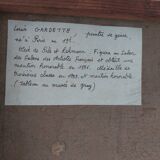 Louis GARDETTE peintre de genre,
né à Paris en
élève de Pils et Lehmann. Figure au Salon
des Salons des Artistes Français et obtient une
mention honorable en Médaille de
troisième classe en et mention honorable
(tableau au musée de Gray)